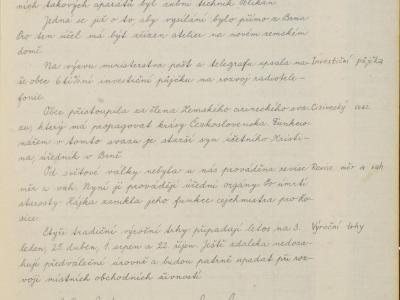 ních takových aparátů byl zubní technik Pelikán.
Jedná se již o to aby vysílání bylo přímo z Brna
Pro ten účel má být zřízen atelier na novém zemském
domě.
Na výzvu ministerstva pošt a telegrafu upsala na- Investiční půjčka
še obec 6% investiční půjčku na rozvoj radiotele-
fonie.
Obec přistoupila za člena Zemského cizineckého sva- Cizinecký svaz
zu, který má propagovat krásy Československa. Funkcio-
nářem v tomto svazu je starší syn účetního Kristi-
na, úředník v Brně.
Od světové války nebyla u nás prováděna revise Revise měr a vah
měr a vah. Nyní ji provádějí úřední orgány. Po úmrtí
starosty Hájka zanikla jeho funkce cejchmistra pro
sice.
Čtyři tradiční výroční trhy připadají letos na 3. Výroční trhy
leden, 25. duben, 1. srpen a 22. říjen. Ještě zdaleka nedosa-
hují předválečné úrovně a budou patrně upadat při roz-
voji místních obchodních živností